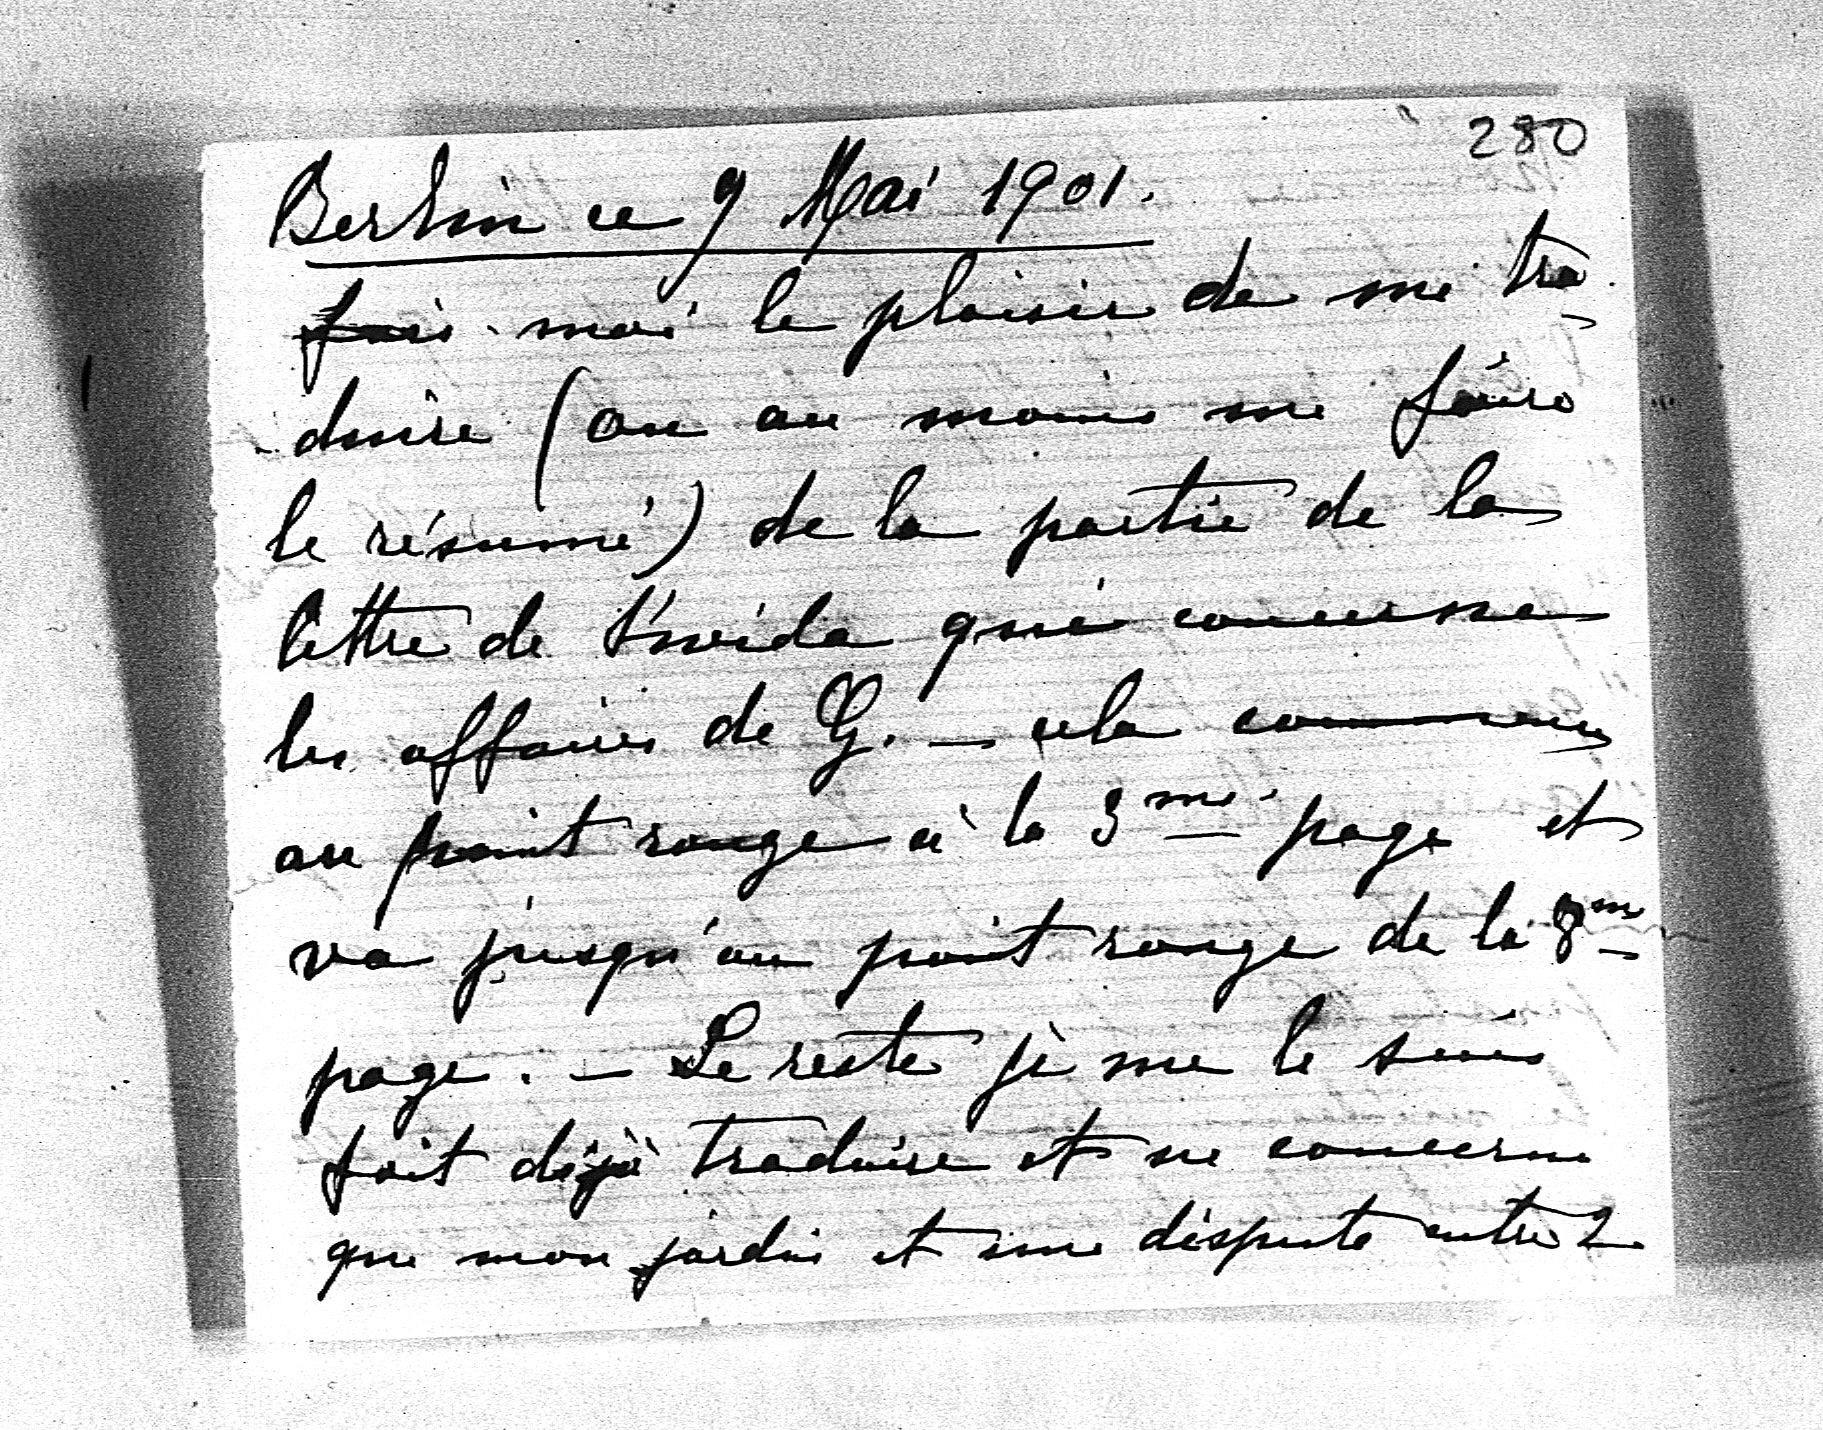 280
Berlin ce 9 Mai 1901.
fais-moi le plaisir de me tra-
duire (ou au moins me faire
le résumé) de la partie de la
lettre de qui concerne
les affaires de G. — cela commence
au point rouge à la 3me page et
va jusqu'au point rouge de la 8me
page. — Le reste je me le suis
fait déjà traduire et ne concerne
que mon jardin et une dispute entre 2